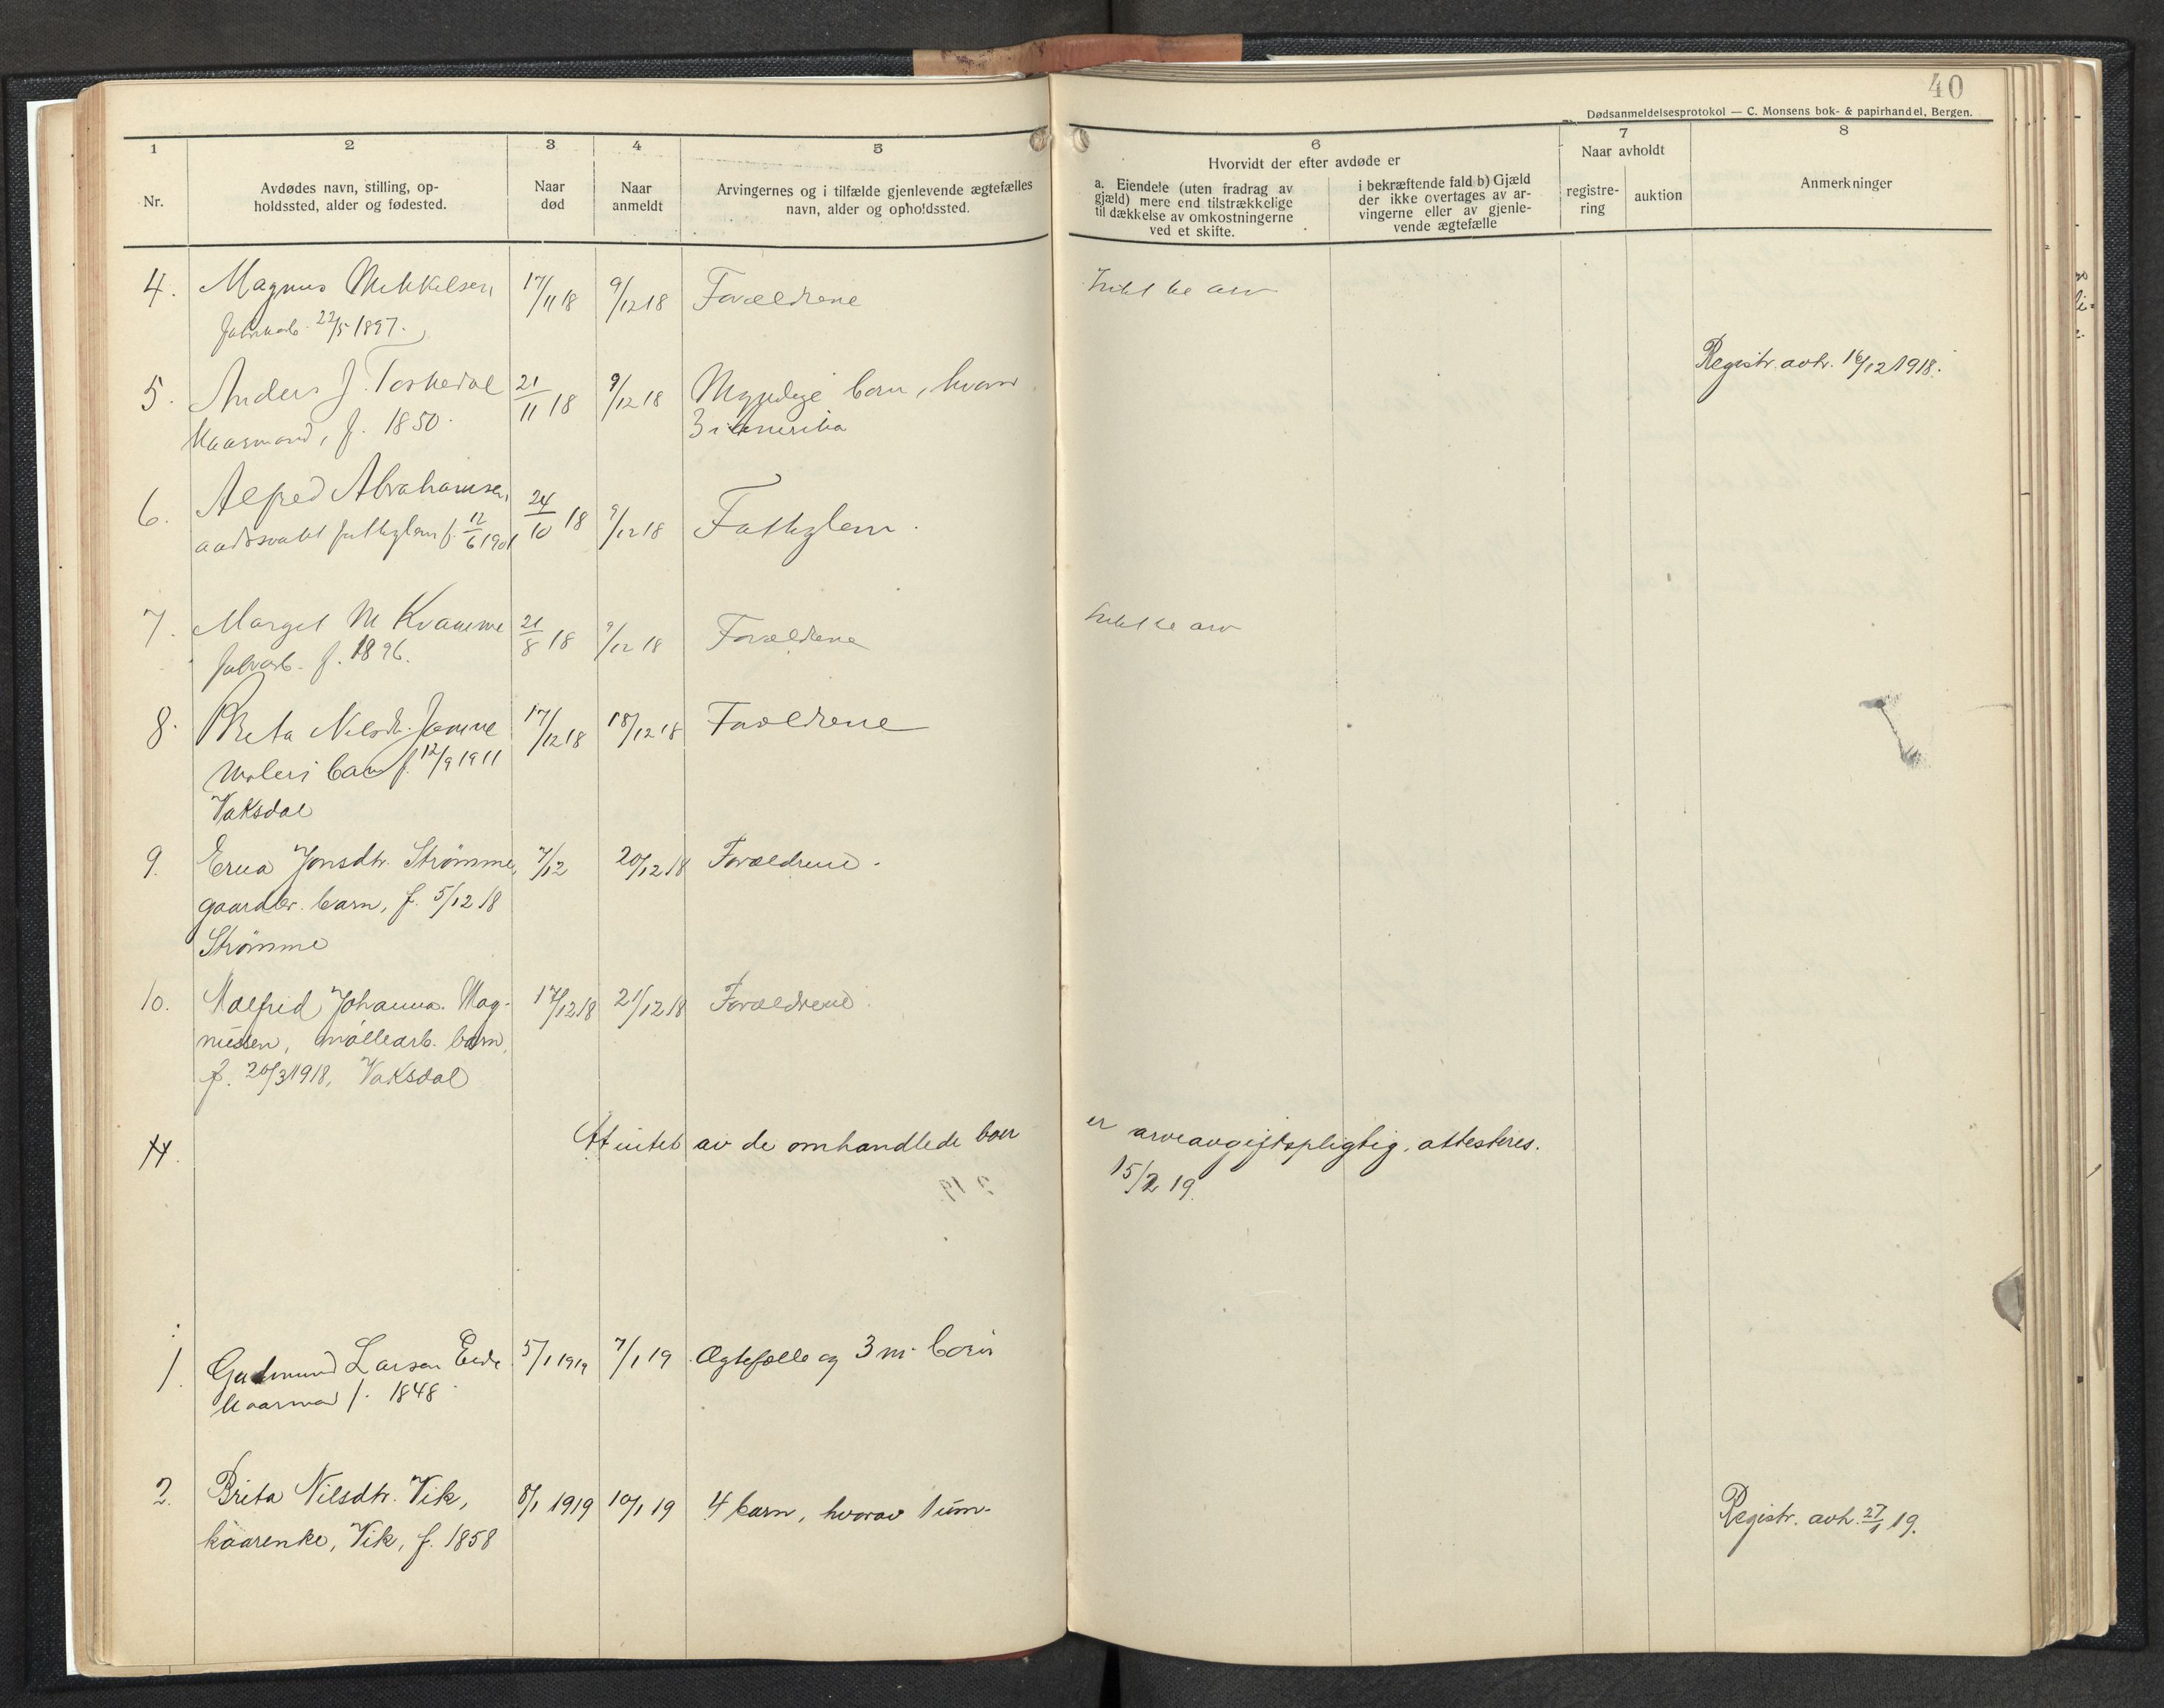 40
Dødsanmeldelsesprotokol — C. Monsens bok- & papirhandel, Bergen.
1 2 3 4 5
Nr.
Avdødes navn, stilling, op-
holdssted, alder og fødested.
Naar
død
Naar
anmeldt
Arvingernes og i tilfælde gjenlevende ægtefælles
navn, alder og opholdssted.
6 7 8
Hvorvidt der efter avdøde er
a. Eiendele (uten fradrag av
gjæld) mere end tilstrækkelige
til dækkelse av omkostningerne
ved et skifte.
i bekræftende fald b) Gjæld
der ikke overtages av ar-
vingerne eller av gjenle-
vende ægtefælle
Naar avholdt
registre-
ring
auktion
Anmerkninger
4. Magnus Mikkelsen 17/11 18 9/12 18 Forældrene
22/5 1897.
Registr. avh. 16/12 1918.
5. Anders J. Toskedal 21/11 18 9/12 18 Myndige barn, hvorav
Kaarmand, f. 1850. 3 i Amerika
6. Alfred Abrahamsen 24/10 18 9/12 18 Fattiglem.
fattiglem f. 12/6 1901
7. Marget M Kvamme 21/8 18 9/12 18 Forældrene
fabrarb. f. 1896.
8. Brita Nilsdtr. 17/12 18 18/12 18 Forældrene
barn f. 12/9 1911
Vaksdal
9. Erna Jonsdtr. Strømme, 7/12 20/12 18 Forældrene.
gaardbr. barn, f. 5/12 18
Strømme
10. Malfrid Johanna Mag- 17/12 18 21/12 18 Forældrene.
nussen, møllearb. barn,
f. 20/3 1918, Vaksdal
11. At intet av de omhandlede boer er arveavgiftspligtig, attesteres.
15/2 19.
1. Gudmund Larsen Eide 5/1 1919 7/1 19 Ægtefælle og 3 m. barn
kaarmand f. 1848
2. Brita Nilsdtr. Vik, 8/1 1919 10/1 19 4 barn, hvorav 1 um. Registr. avh. 27/1 19.
kaarenke, Vik, f. 1858